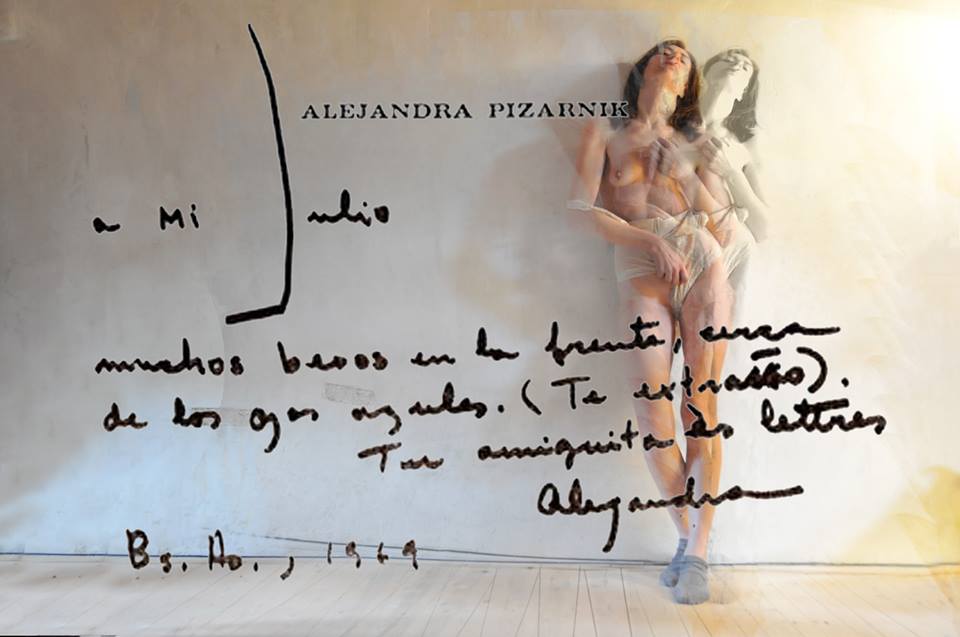 ALEJANDRA PIZARNIK
a Mi Julio
muchos besos en la frente, cerca
de los ojos azules. (Te extraño).
Tu amiguita ès lettres
Alejandra
Bs. As., 1969